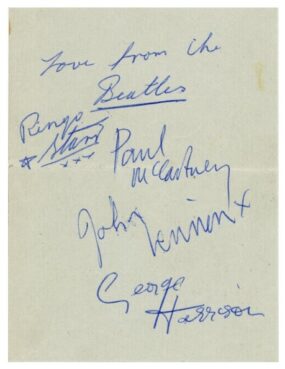 love from the
Beatles
Ringo
Starr
xxx
Paul
McCartney
John
Lennon x
George
Harrison